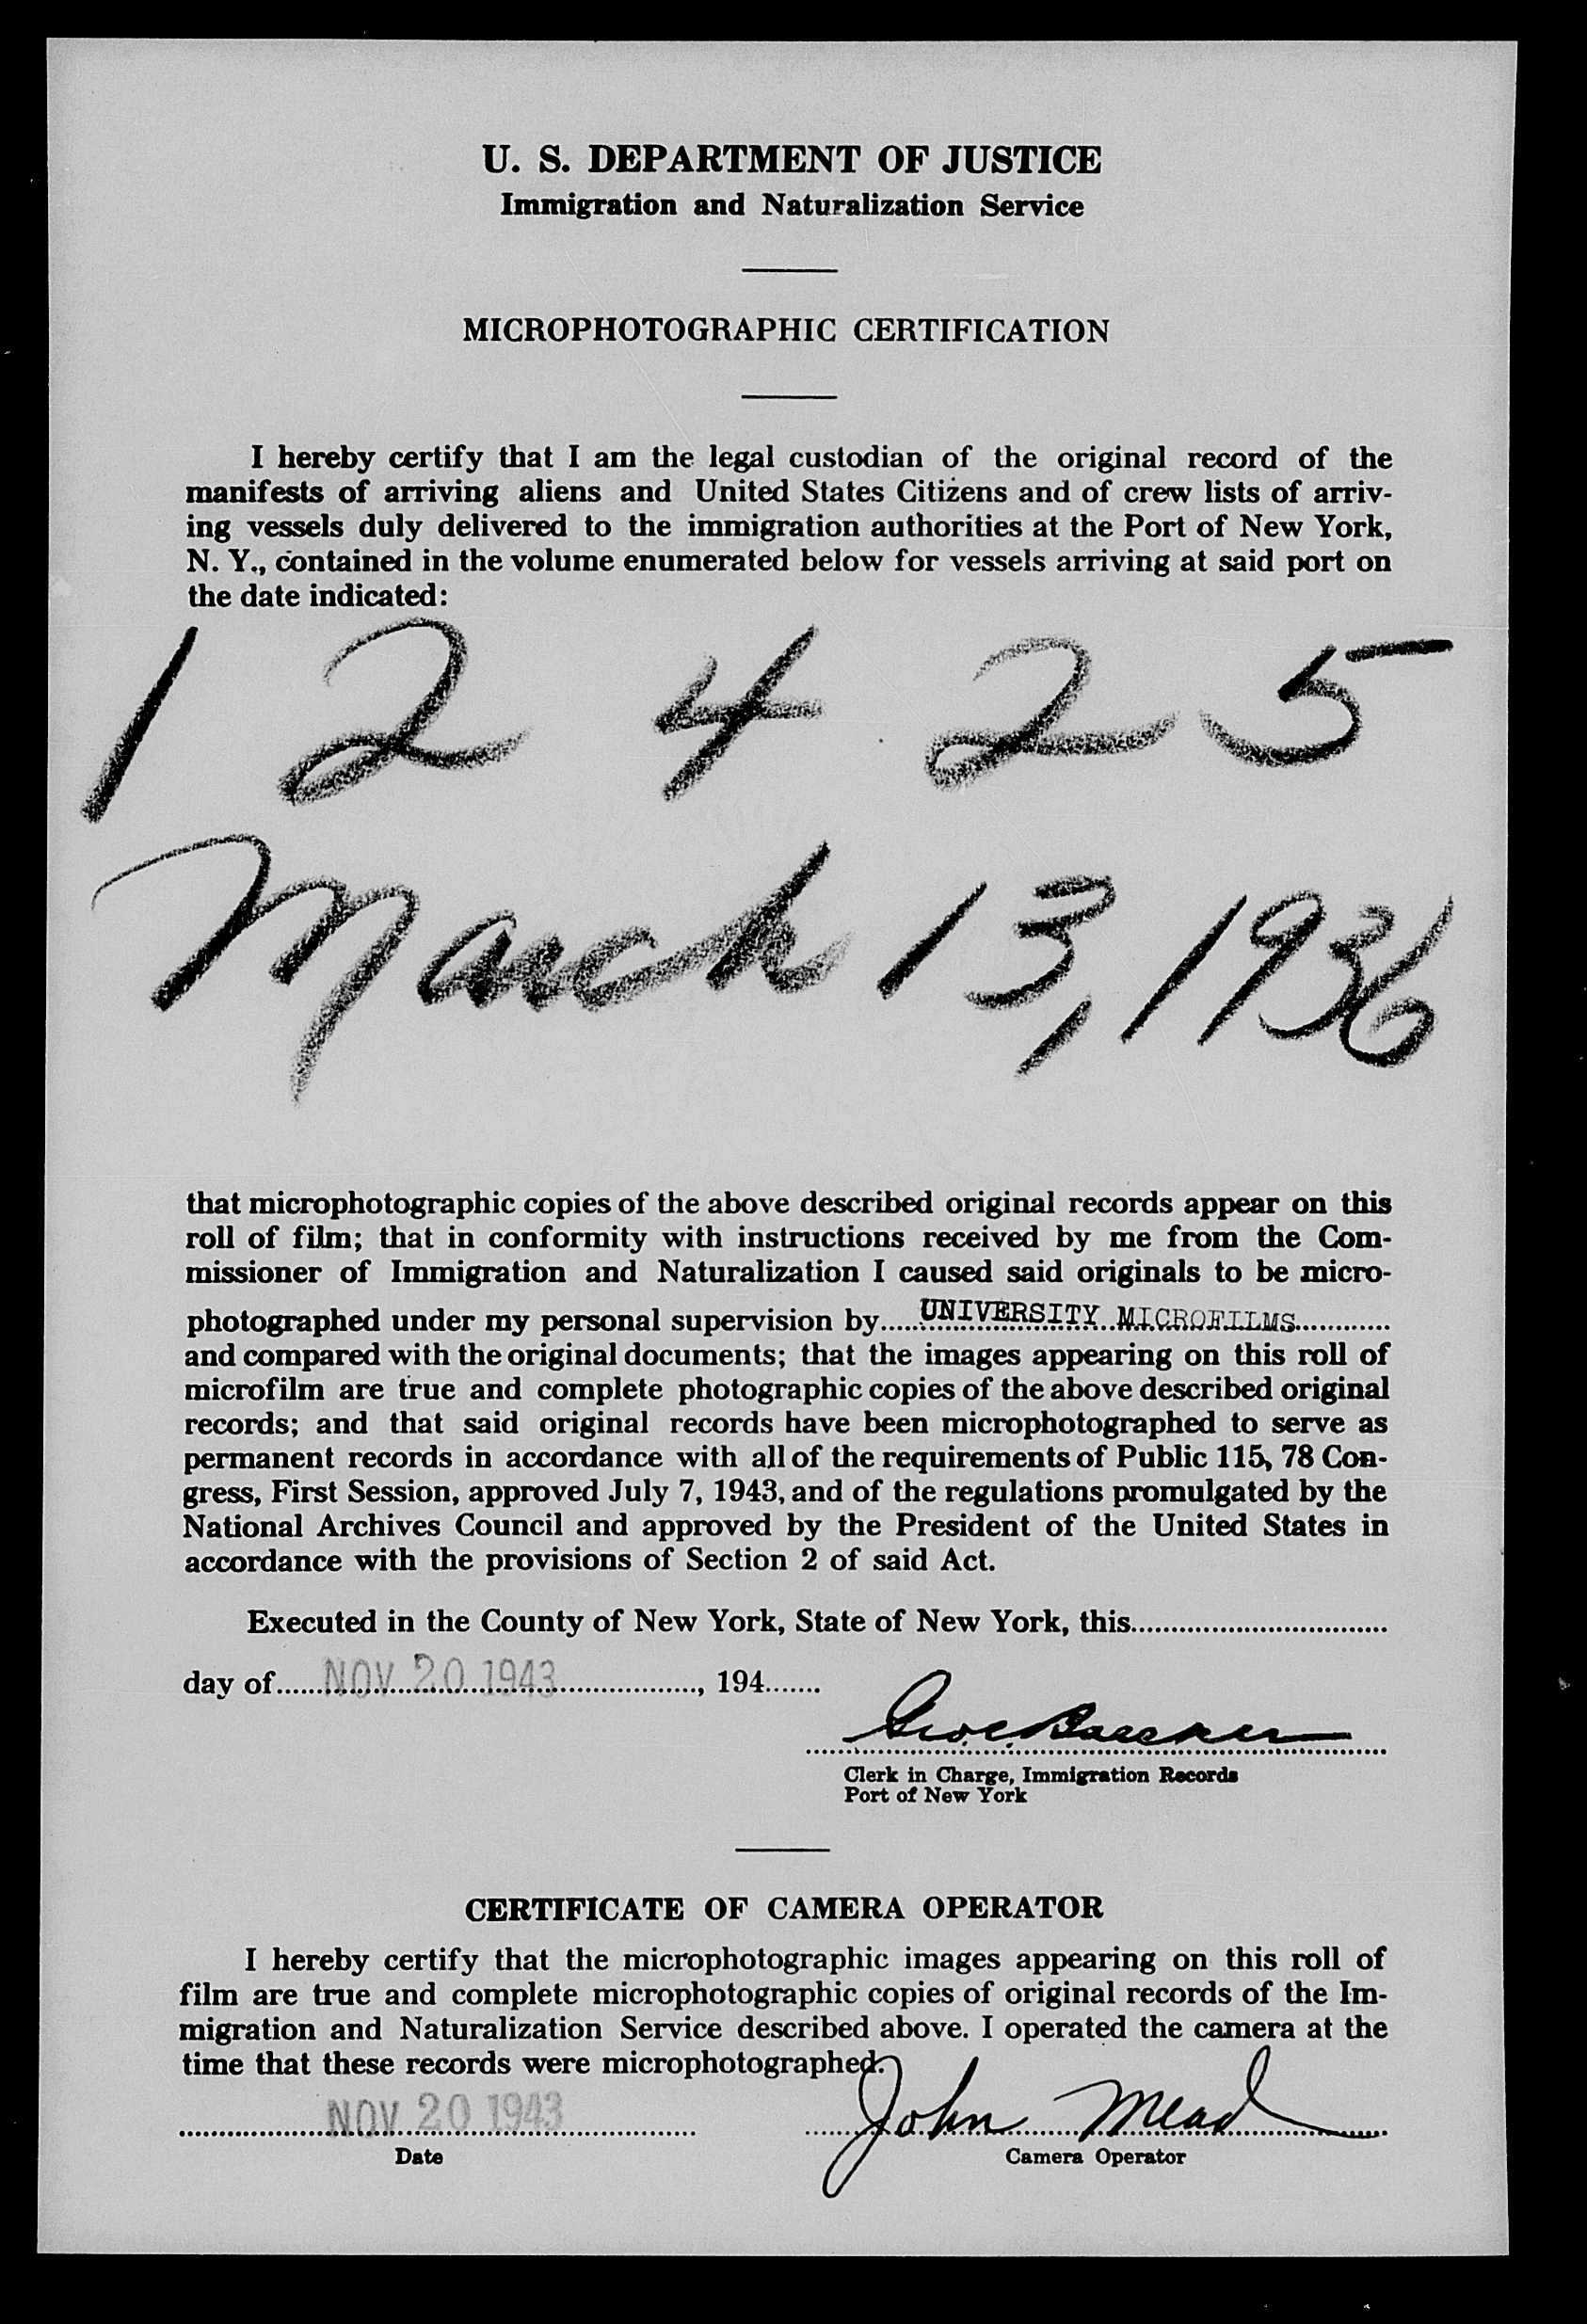 U. S. DEPARTMENT OF JUSTICE
Immigration and Naturalization Service
MICROPHOTOGRAPHIC CERTIFICATION
I hereby certify that I am the legal custodian of the original record of the
manifests of arriving aliens and United States Citizens and of crew lists of arriv-
ing vessels duly delivered to the immigration authorities at the Port of New York,
N. Y., contained in the volume enumerated below for vessels arriving at said port on
the date indicated:
1 2 4 2 5
March 13, 1936
that microphotographic copies of the above described original records appear on this
roll of film; that in conformity with instructions received by me from the Com-
missioner of Immigration and Naturalization I caused said originals to be micro-
photographed under my personal supervision by.....UNIVERSITY MICROFILMS............
and compared with the original documents; that the images appearing on this roll of
microfilm are true and complete photographic copies of the above described original
records; and that said original records have been microphotographed to serve as
permanent records in accordance with all of the requirements of Public 115, 78 Con-
gress, First Session, approved July 7, 1943, and of the regulations promulgated by the
National Archives Council and approved by the President of the United States in
accordance with the provisions of Section 2 of said Act.
Executed in the County of New York, State of New York, this.................................
day of......NOV 20 1943.................., 194.......
Clerk in Charge, Immigration Records
Port of New York
CERTIFICATE OF CAMERA OPERATOR
I hereby certify that the microphotographic images appearing on this roll of
film are true and complete microphotographic copies of original records of the Im-
migration and Naturalization Service described above. I operated the camera at the
time that these records were microphotographed.
NOV 20 1943 John Mead
Date Camera Operator